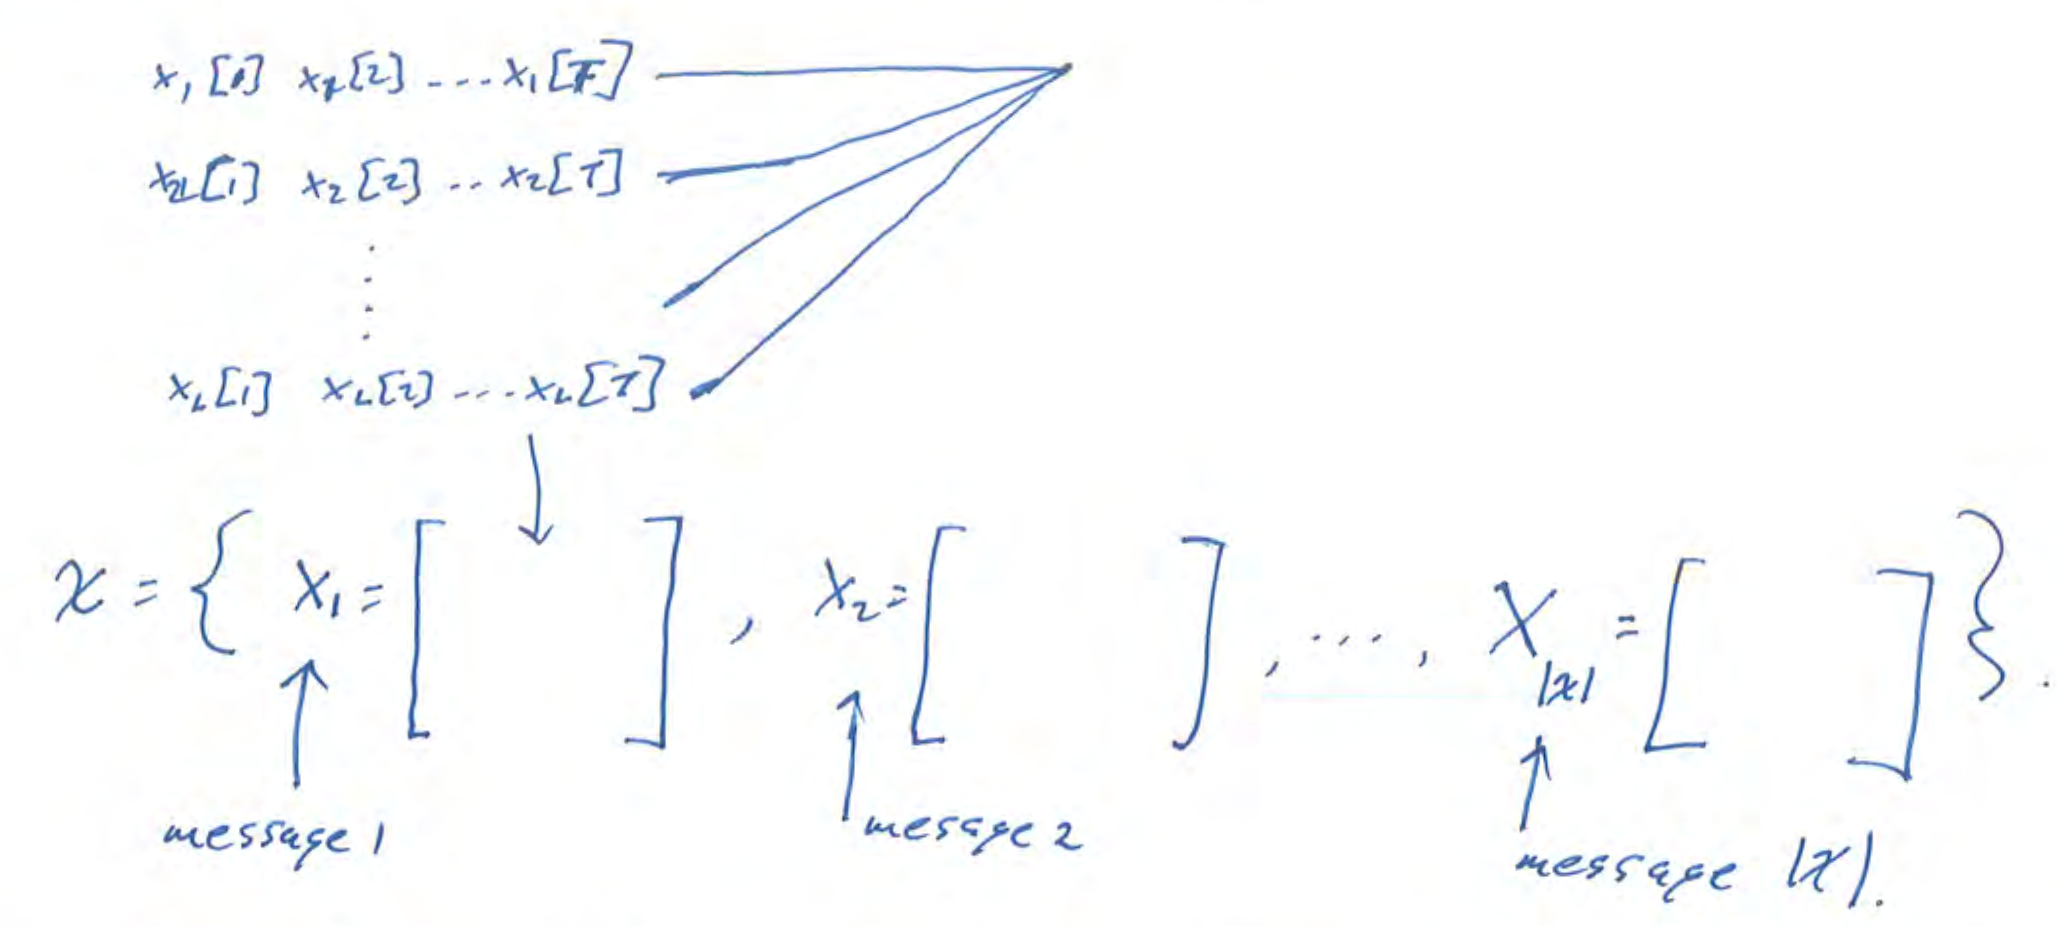 x₁[1] x₁[2] ... x₁[T]
x₂[1] x₂[2] .. x₂[T]
x_L[1] x_L[2] ... x_L[T]
𝒳 = { X₁ = [ ] , X₂ = [ ] , ... , X_|𝒳| = [ ] } .
message 1 message 2 message |𝒳|.